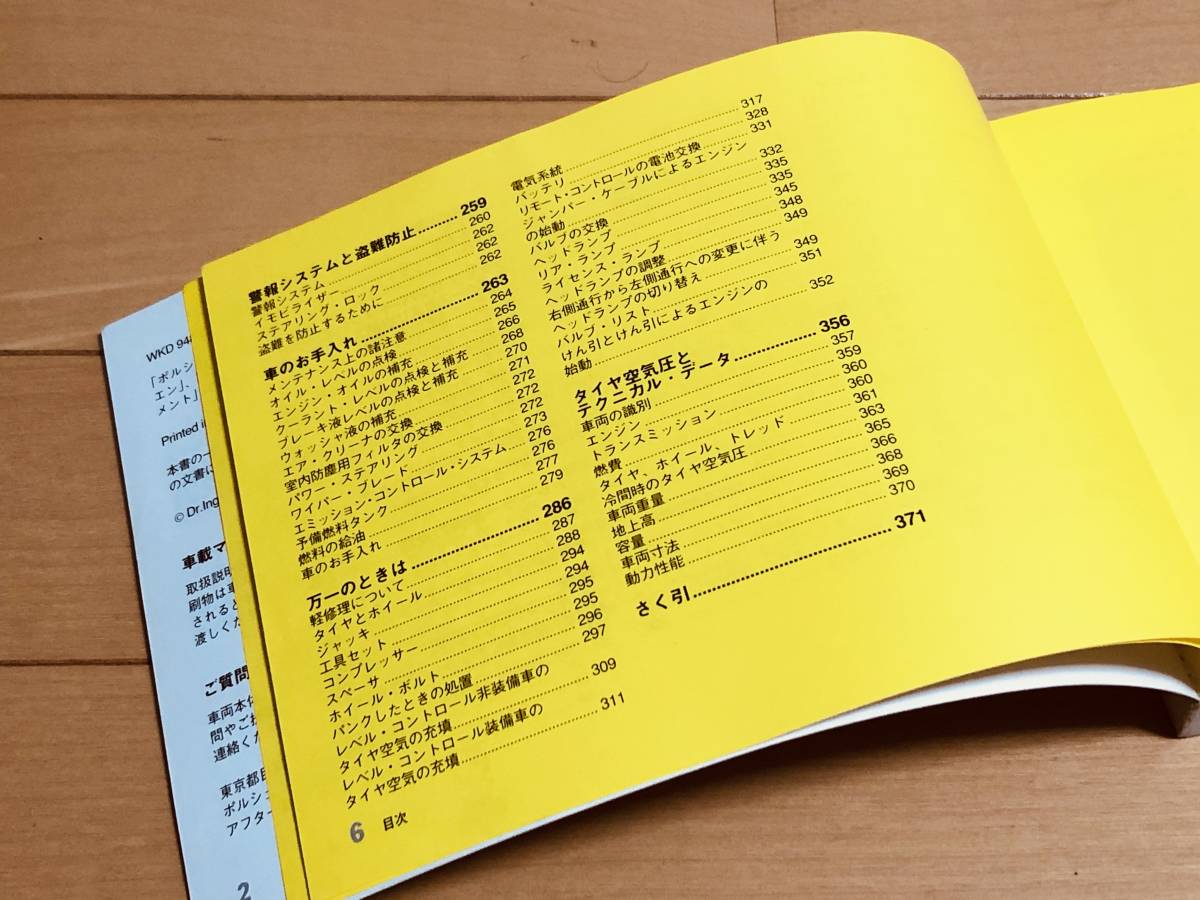 WKD 948
「ポルシ
エン」、
メント」
Printed i
本書の一
の文書に
© Dr.Ing
車載マ
取扱説明
刷物は車
されると
渡しくだ
ご質問
車両本体
問やご
連絡くだ
東京都目
ポルシェ
アフター
2
警報システムと盗難防止 ........ 259
警報システム ........ 260
イモビライザー ........ 262
ステアリング・ロック ........ 262
盗難を防止するために ........ 262
車のお手入れ ........ 263
メンテナンス上の諸注意 ........ 264
オイル・レベルの点検 ........ 265
エンジン・オイルの補充 ........ 266
クーラント・レベルの点検と補充 ........ 268
ブレーキ液レベルの点検と補充 ........ 270
ウォッシャ液の補充 ........ 271
エア・クリーナの交換 ........ 272
室内防塵用フィルタの交換 ........ 272
パワー・ステアリング ........ 272
ワイパー・ブレード ........ 273
エミッション・コントロール・システム ........ 276
予備燃料タンク ........ 276
燃料の給油 ........ 277
車のお手入れ ........ 279
万一のときは ........ 286
軽修理について ........ 287
タイヤとホイール ........ 288
ジャッキ ........ 294
工具セット ........ 294
コンプレッサー ........ 295
スペーサ ........ 295
ホイール・ボルト ........ 296
パンクしたときの処置 ........ 297
レベル・コントロール非装備車の
タイヤ空気の充填 ........ 309
レベル・コントロール装備車の
タイヤ空気の充填 ........ 311
電気系統 ........ 317
バッテリ ........ 328
リモート・コントロールの電池交換 ........ 331
ジャンパー・ケーブルによるエンジン
の始動 ........ 332
バルブの交換 ........ 335
ヘッドランプ ........ 335
リア・ランプ ........ 345
ライセンス・ランプ ........ 348
ヘッドランプの調整 ........ 349
右側通行から左側通行への変更に伴う
ヘッドランプの切り替え ........ 349
バルブ・リスト ........ 351
けん引とけん引によるエンジンの
始動 ........ 352
タイヤ空気圧と
テクニカル・データ ........ 356
車両の識別 ........ 357
エンジン ........ 359
トランスミッション ........ 360
燃費 ........ 360
タイヤ、ホイール、トレッド ........ 361
冷間時のタイヤ空気圧 ........ 363
車両重量 ........ 365
地上高 ........ 366
容量 ........ 368
車両寸法 ........ 369
動力性能 ........ 370
さく引 ........ 371
6 目次